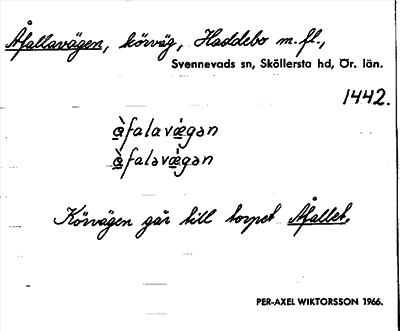 Åfallavägen, körväg, Haddebo m.fl.,
Svennevads sn, Sköllersta hd, Ör. län.
1442.
å̀falavǽgən
å̀faləvǽgən
Körvägen går till torpet Åfallet.
PER-AXEL WIKTORSSON 1966.